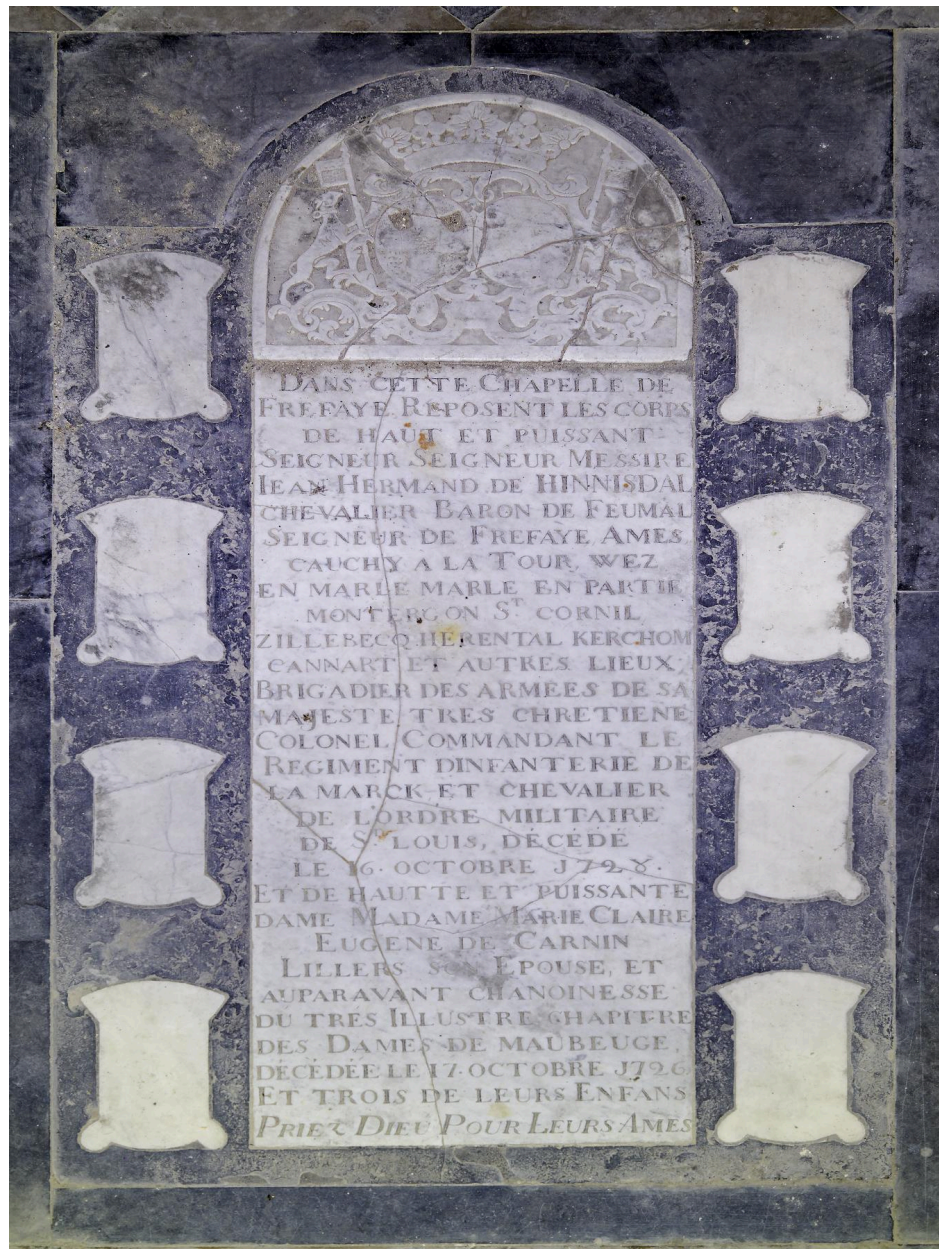 DANS CETTE CHAPELLE DE
FREFAYE REPOSENT LES CORPS
DE HAUT ET PUISSANT
SEIGNEUR SEIGNEUR MESSIRE
IEAN HERMAND DE HINNISDAL
CHEVALIER BARON DE FEUMAL
SEIGNEUR DE FREFAYE AMES
CAUCHY A LA TOUR, WEZ
EN MARLE MARLE EN PARTIE
MONTERGON ST CORNIL
ZILLEBECQ HERENTAL KERCHOM
CANNART ET AUTRES LIEUX,
BRIGADIER DES ARMEES DE SA
MAJESTE TRES CHRETIENE
COLONEL COMMANDANT LE
REGIMENT DINFANTERIE DE
LA MARCK ET CHEVALIER
DE LORDRE MILITAIRE
DE ST LOUIS, DÉCÉDÉ
LE 16. OCTOBRE J728.
ET DE HAUTTE ET PUISSANTE
DAME MADAME MARIE CLAIRE
EUGENE DE CARNIN
LILLERS SON EPOUSE, ET
AUPARAVANT CHANOINESSE
DU TRES ILLUSTRE CHAPITRE
DES DAMES DE MAUBEUGE,
DÉCÉDÉE LE 17. OCTOBRE J726
ET TROIS DE LEURS ENFANS
PRIEZ DIEU POUR LEURS AMES